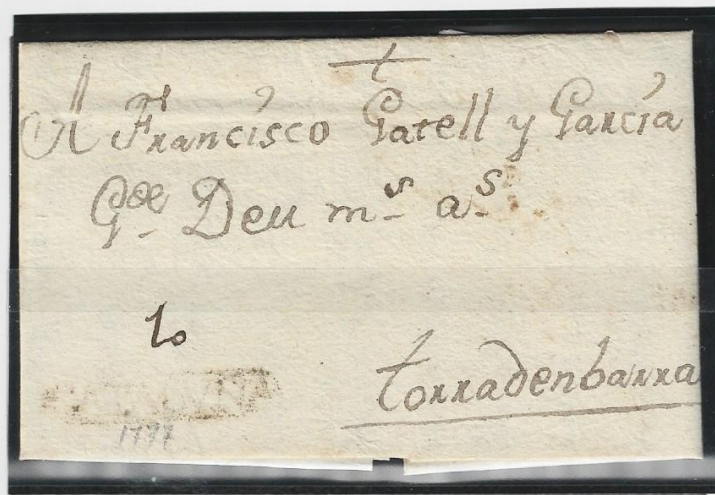 t
A Francisco Gatell y Garcia
Gde Deu ms as
10
torradenbarra